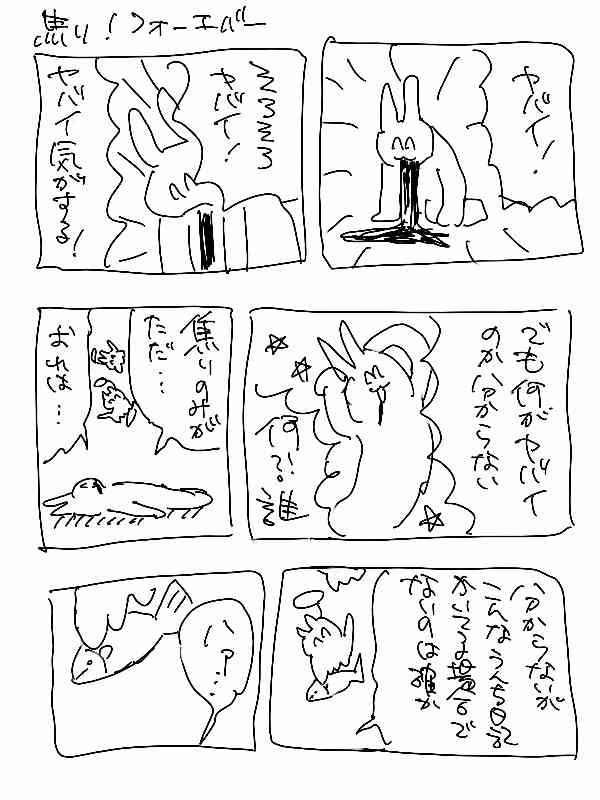 焦り!フォーエバー
ヤバイ!
そろそろ
ヤバイ!
ヤバイ気がする!
でも何がヤバイ
のか分からない
何?!誰
焦りのみが
ただ…
おれは…
分からないが
こんなうんち日記
かいてる場合で
ないのは確か
ハァ…